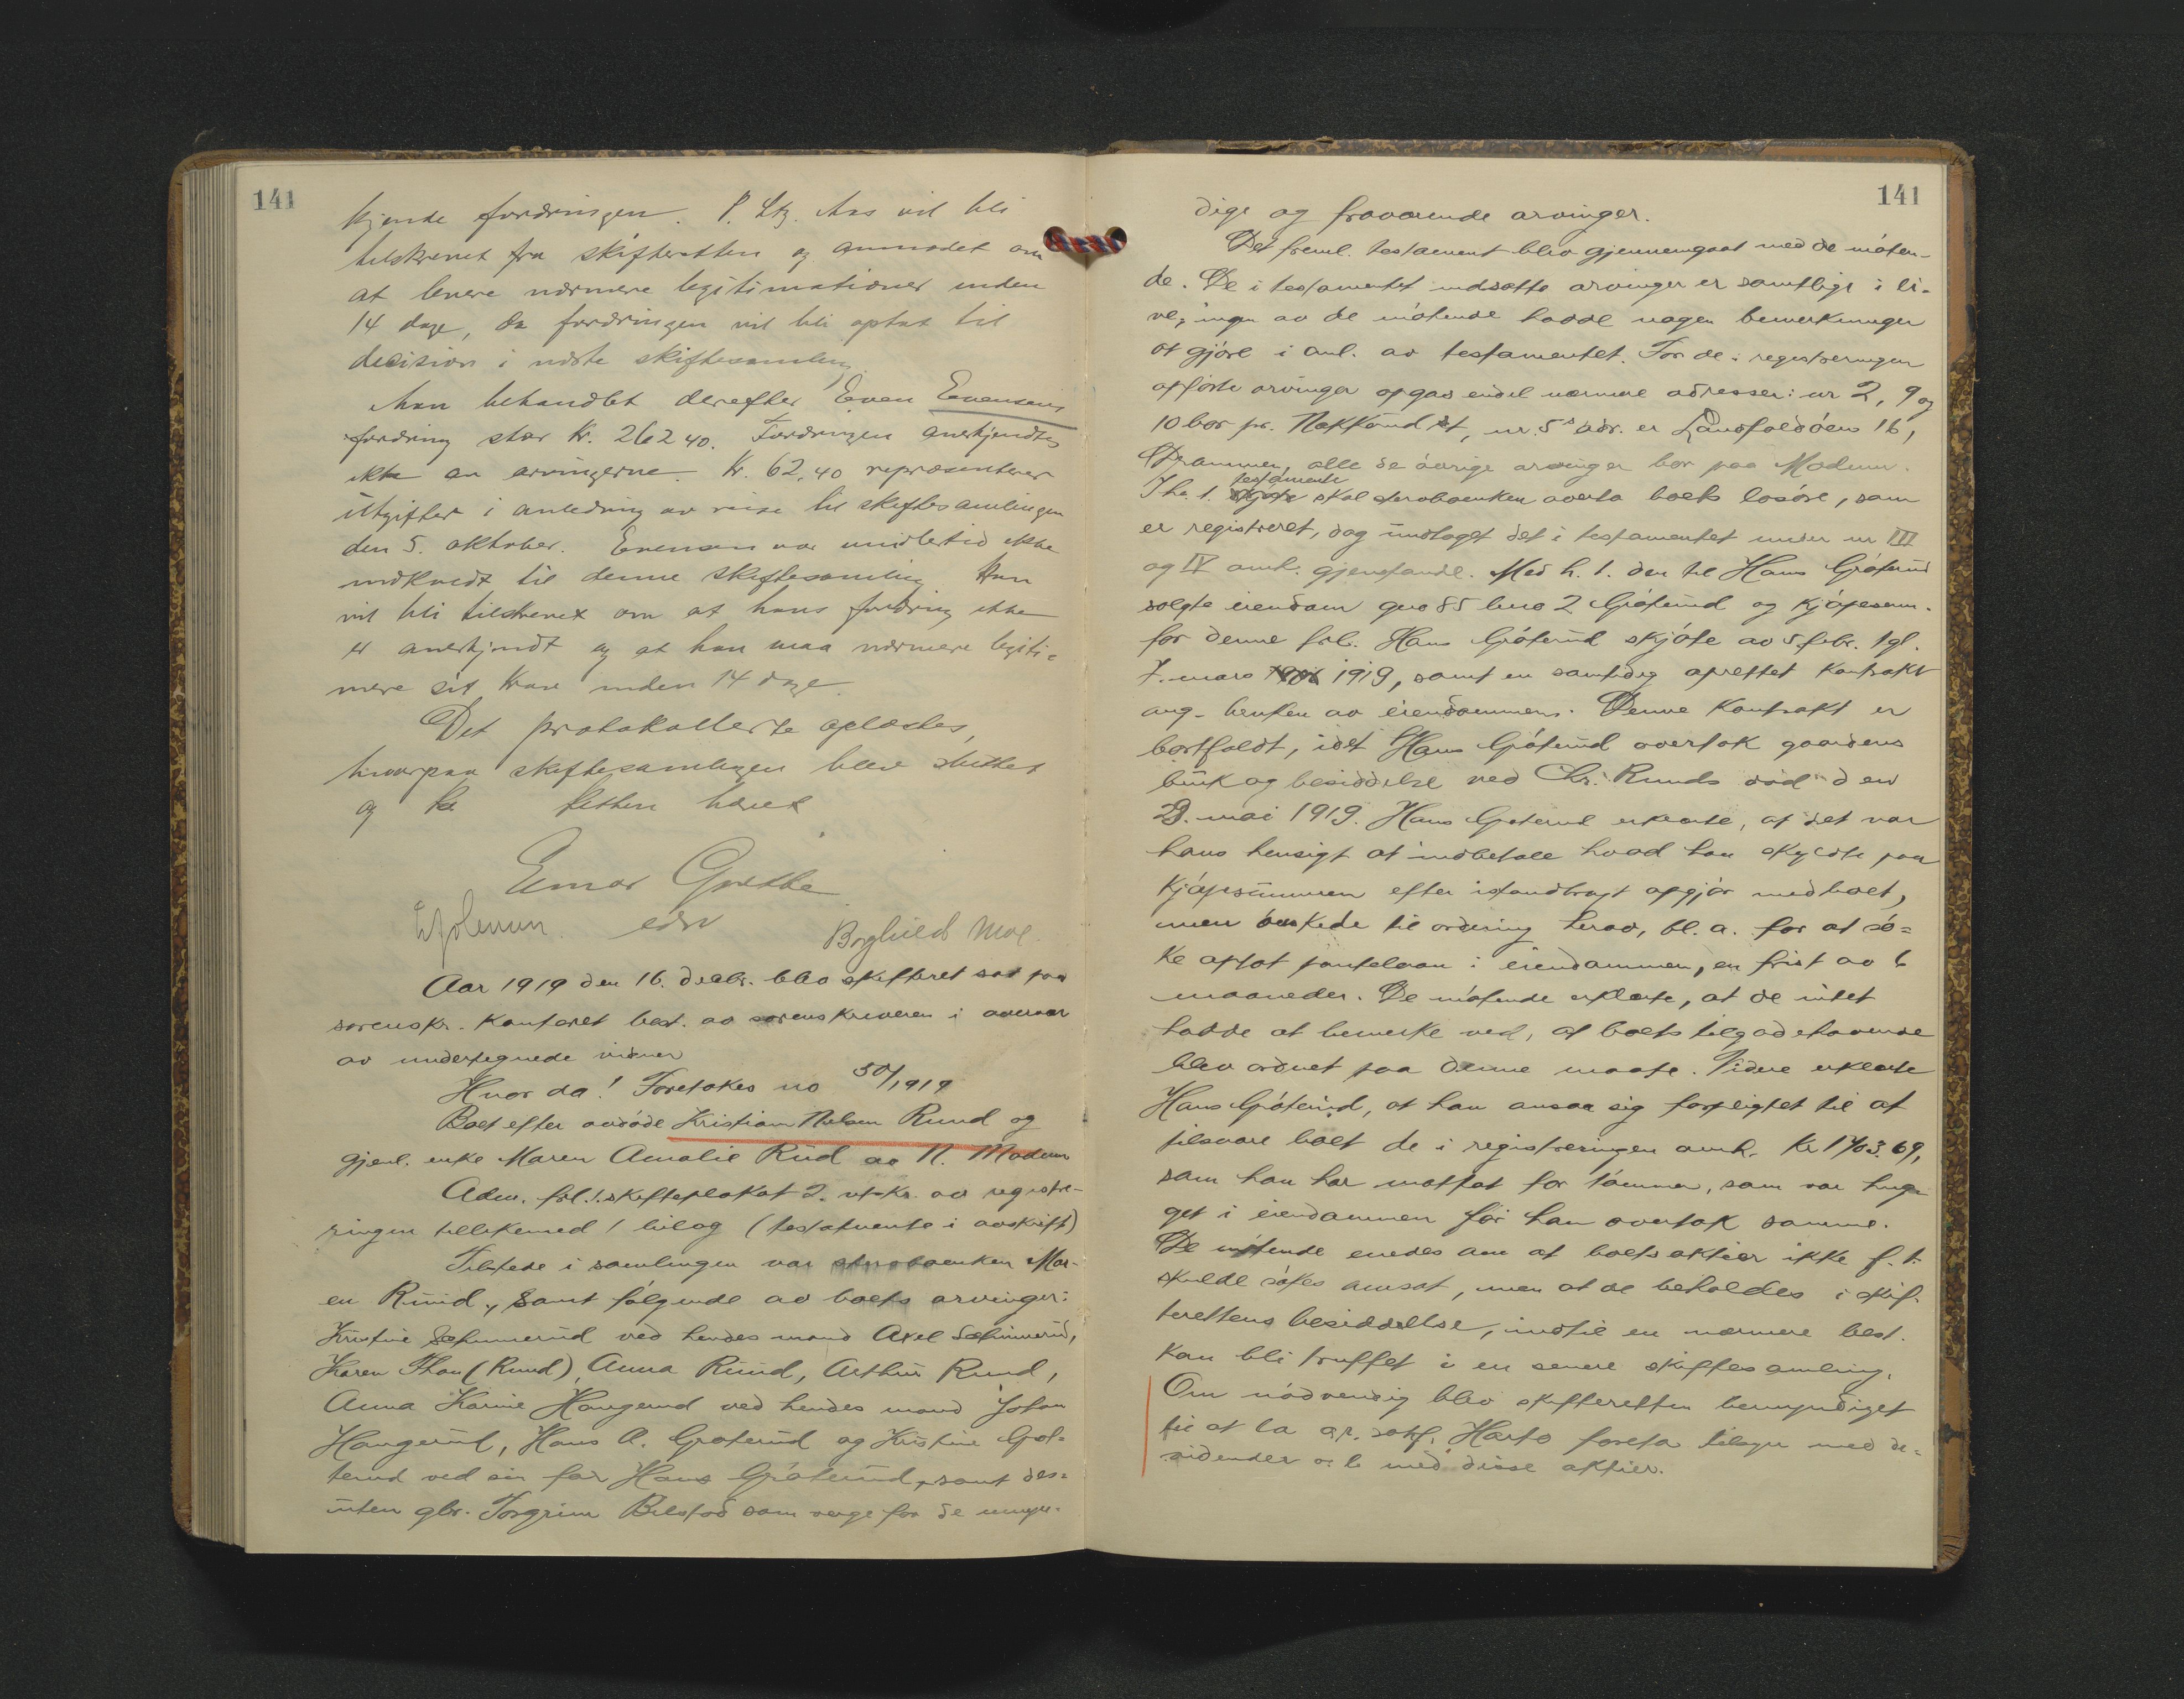 141
kjende fordringen. P. Ltz. Aas vil bli
tilskrevet fra skifteretten og anmodet om
at levere nærmere legitimationer inden
14 dage, da fordringen vil bli optat til
decision i næste skiftesamling.
Man behandlet derefter Even Evensens
fordring stor kr. 262 40. Fordringen anerkjendtes
ikke av arvingerne. Kr. 62,40 repræsenterer
utgifter i anledning av reise til skiftesamlingen
den 5. oktober. Evensen var imidlertid ikke
indkaldt til denne skiftesamling. Han
vil bli tilskrevet om at hans fordring ikke
er anerkjendt og at han maa nærmere legiti-
mere sit krav inden 14 dage.
Det protokollerte oplæstes,
hvorpaa skiftesamlingen blev sluttet
og retten hævet
Einar
edsv Borghild Moe.
Aar 1919 den 16. decbr. blev skifteret sat paa
sorenskr. kontoret best. av sorenskriveren i overvær
av undertegnede vidner
Hvor da! Foretokes no 50/1919
Boet efter avdøde Kristian Nilsen Ruud og
gjenl. enke Maren Amalie Rud av N. Modum
Adm. frl. 1. skifteplakat 2. utskr. av registre-
ringen tillikemed 1 bilag (testamente i avskrift)
Tilstede i samlingen var sterboenken Mar-
en Ruud, samt følgende av boets arvinger:
Kristine Sæhimerud ved hendes mand Axel Sæhimerud,
Karen Thon (Ruud), Anna Ruud, Arthur Ruud,
Anna Karine Haugerud ved hendes mand Johan
Haugerud, Hans A. Grøterud og Kristine Grø-
terud ved sin far Hans Grøterud, samt des-
uten gbr. Torgrim Belstad som verge for de umyn-
141
dige og fraværende arvinger.
Det freml. testament blev gjennemgaat med de møten-
de. De i testamentet indsatte arvinger er samtlige i li-
ve; ingen av de møtende hadde nogen bemerkninger
at gjøre i anl. av testamentet. For de i registreringen
opførte arvinger opgas endel nærmere adresser: nr 2, 9 og
10 bor pr. Nakkerud st, nr. 5s adr. er Landfaldøen 16,
Drammen, alle de øvrige arvinger bor paa Modum.
I h. t. testamente skal sterboenken overta boets løsøre, som
er registreret, dog undtaget det i testamentet under nr III
og IV omh. gjenstande. Med h. t. den til Hans Grøterud
solgte eiendom gno 85 bno 2 Grøterud og kjøpesum.
for denne frl. Hans Grøterud skjøte av 5. febr. tgl.
7. mars 1919, samt en samtidig oprettet kontrakt
ang. bruken av eiendommen. Denne kontrakt er
bortfaldt, idet Hans Grøterud overtok gaardens
bruk og besiddelse ved Chr. Ruuds død den
23. mai 1919. Hans Grøterud erklærte, at det var
hans hensigt at indbetale hvad han skyldte paa
kjøpesummen efter istandbragt opgjør med boet,
men ønskede til ordning herav, bl. a. for at sø-
ke optat pantelaan i eiendommen, en frist av 6
maaneder. De møtende erklærte, at de intet
hadde at bemerke ved, at boets tilgodehavende
blev ordnet paa denne maate. Videre erklærte
Hans Grøterud, at han ansaa sig forpligtet til at
tilsvare boet de i registreringen omh. Kr 1703.69,
som han har mottat for tømmer, som var hug-
get i eiendommen før han overtok samme.
De møtende enedes om at boets aktier ikke f. t.
skulde søkes omsat, men at de beholdes i skif-
terettens besiddelse, indtil en nærmere best.
kan bli truffet i en senere skiftesamling.
Om nødvendig blev skifteretten bemyndiget
til at la o.r. sakf. Harto foreta tilsyn med di-
videnden o. l. med disse aktier.